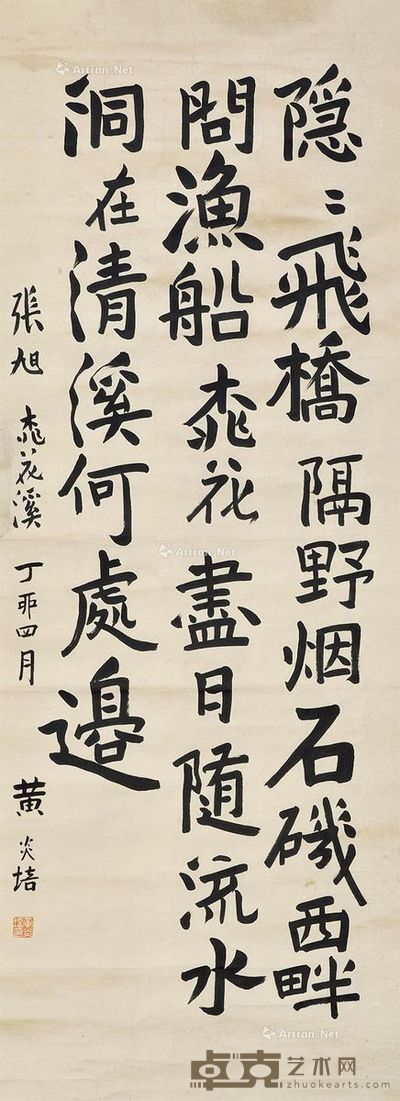 隐〻飛橋隔野烟石磯西畔
問漁船桃花盡日随流水
洞在清溪何處邊
張旭 桃花溪 丁卯四月 黄炎培
Artron.Net
Artron.Net
Artron.Net
Artron.Net
卓克艺术网
zhuokearts.com